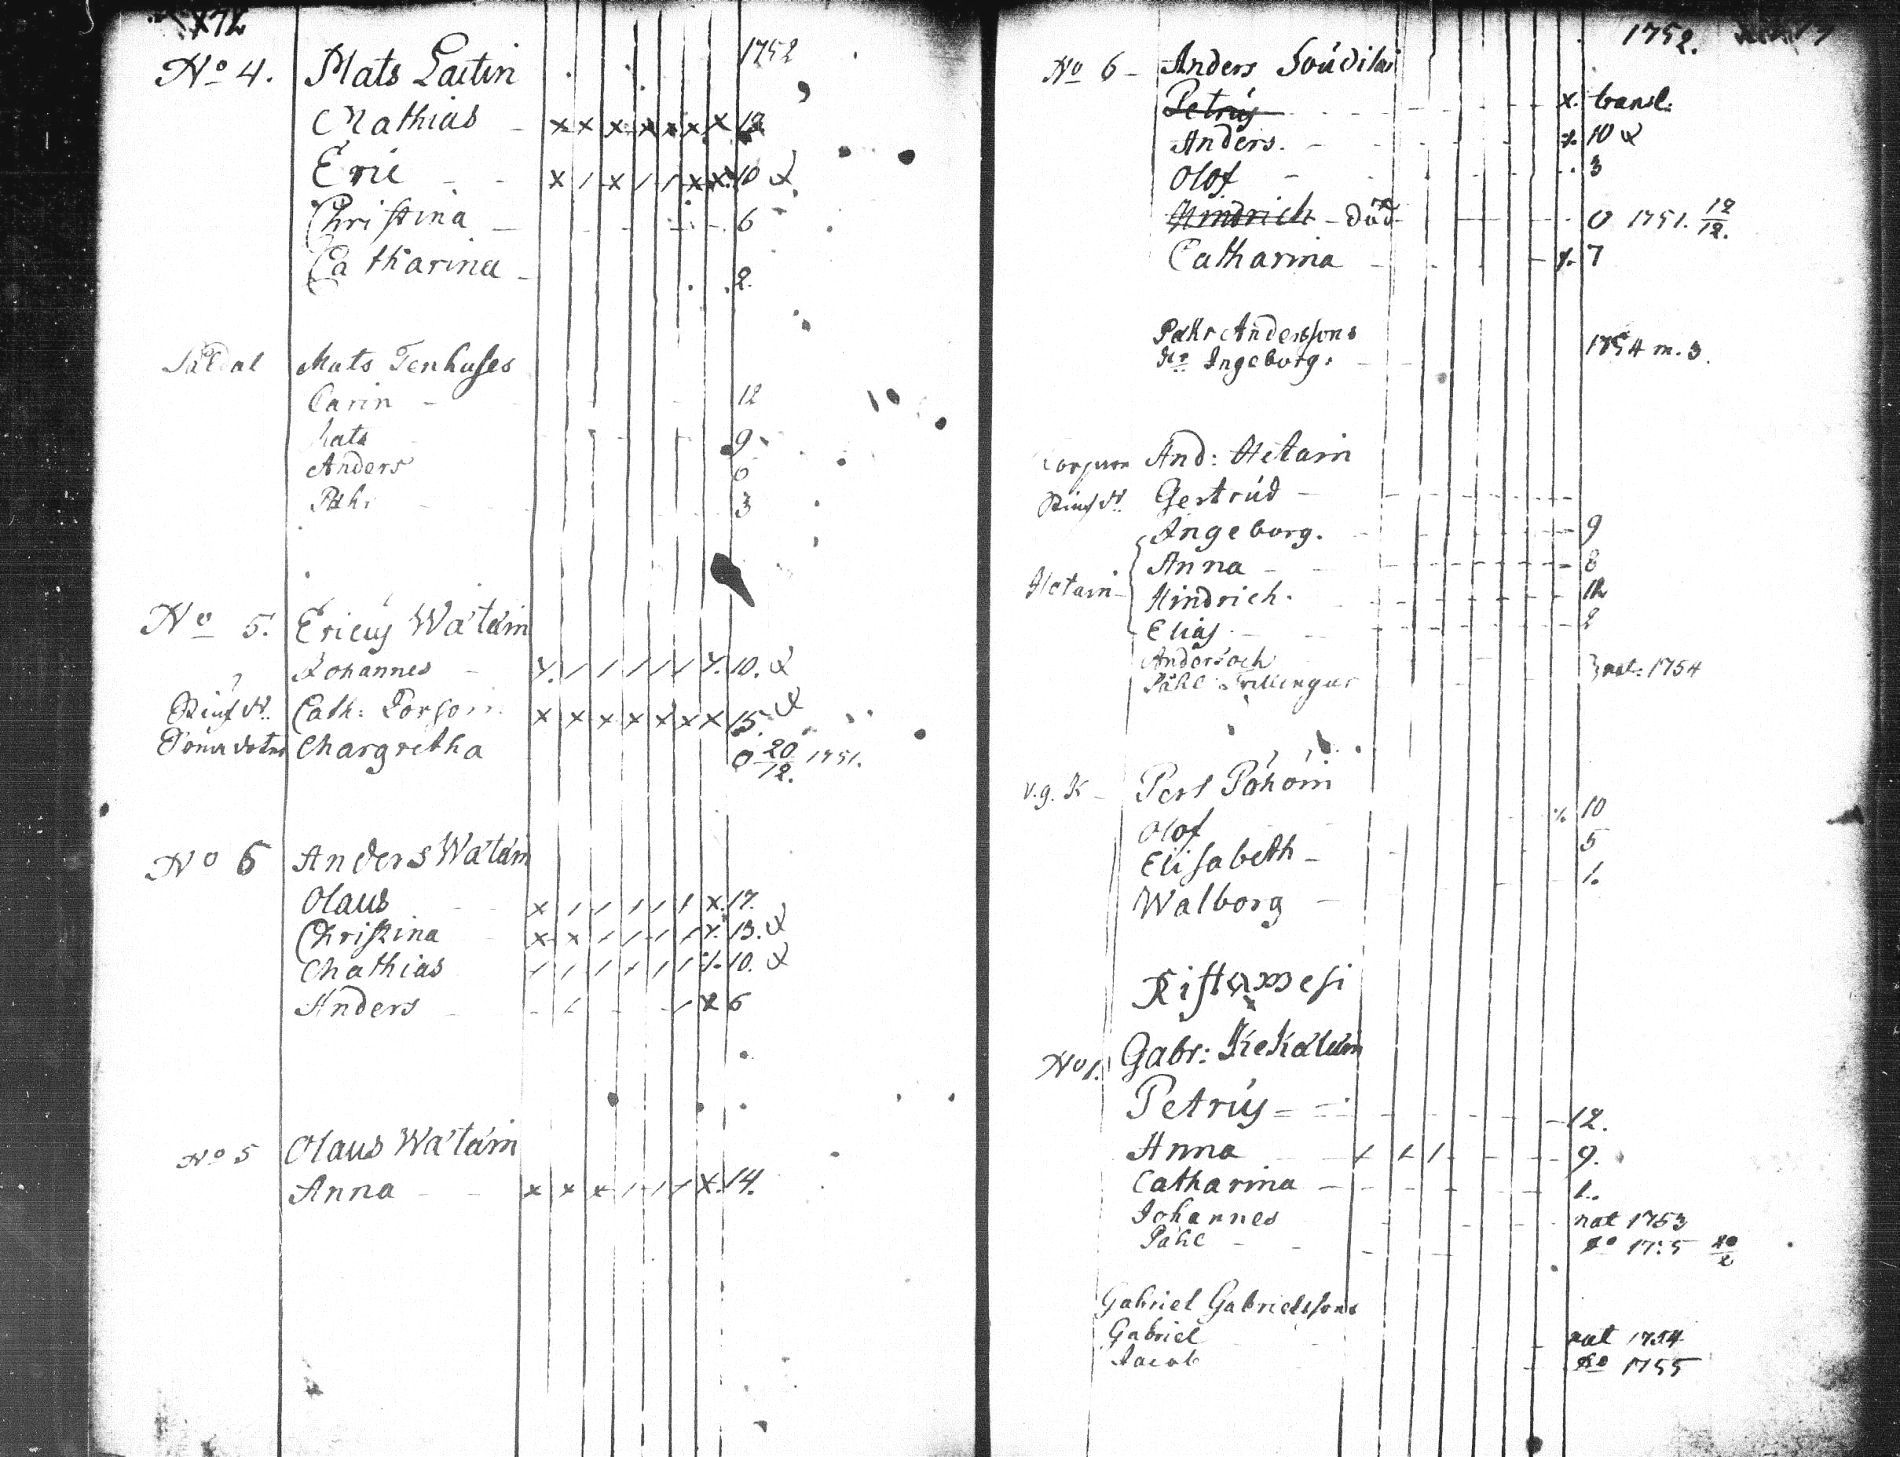 172
1752
No 4. Mats Laitin
Mathias - x x x x x x x 12
Eric - - x / x / / x x 10 X
Christina - 6
Catharina - 2.
Mats Tenhuses
Carin - 12
Mats 9
Anders 6
Påhr 3
No 5. Ericus Watain
Johannes - x. / / / / / x. 10. X
Cath: x x x x x x x 15. X
Margretha 0 20/12. 1751.
No 6 Anders Watain
Olaus x / / / / / x. 17.
Christina x x / / / / x. 13. X
Mathias / / / / / / x. 10. X
Anders - / - - / x 6
No 5 Olaus Watain
Anna - - x x x / / / x. 14.
1752.
No 6 - Anders
Petrus x. transl:
Anders. - x. 10 X
Olof - 3
Hindrich - död 0 1751. 12/12.
Catharina - x. 7
Påhr Anderssons
do Ingeborg. 1754 m. 3.
And: Hetain
Gertrud -
Ingeborg. - 9
Anna - 8
Hetain - Hindrich. 12
Elias - 2
Anders och
Påhl Trillingar nat: 1754
v.g. K - Pers Påhoin
Olof x 10
Elisabeth - 5
Walborg - 1.
No 1. Gabr:
Petrus - 12.
Anna / / / 9.
Catharina - 1.
Johannes nat 1753
Påhl - do 1755
Gabriel Gabrielssons
Gabriel nat 1754
Jacob do 1755